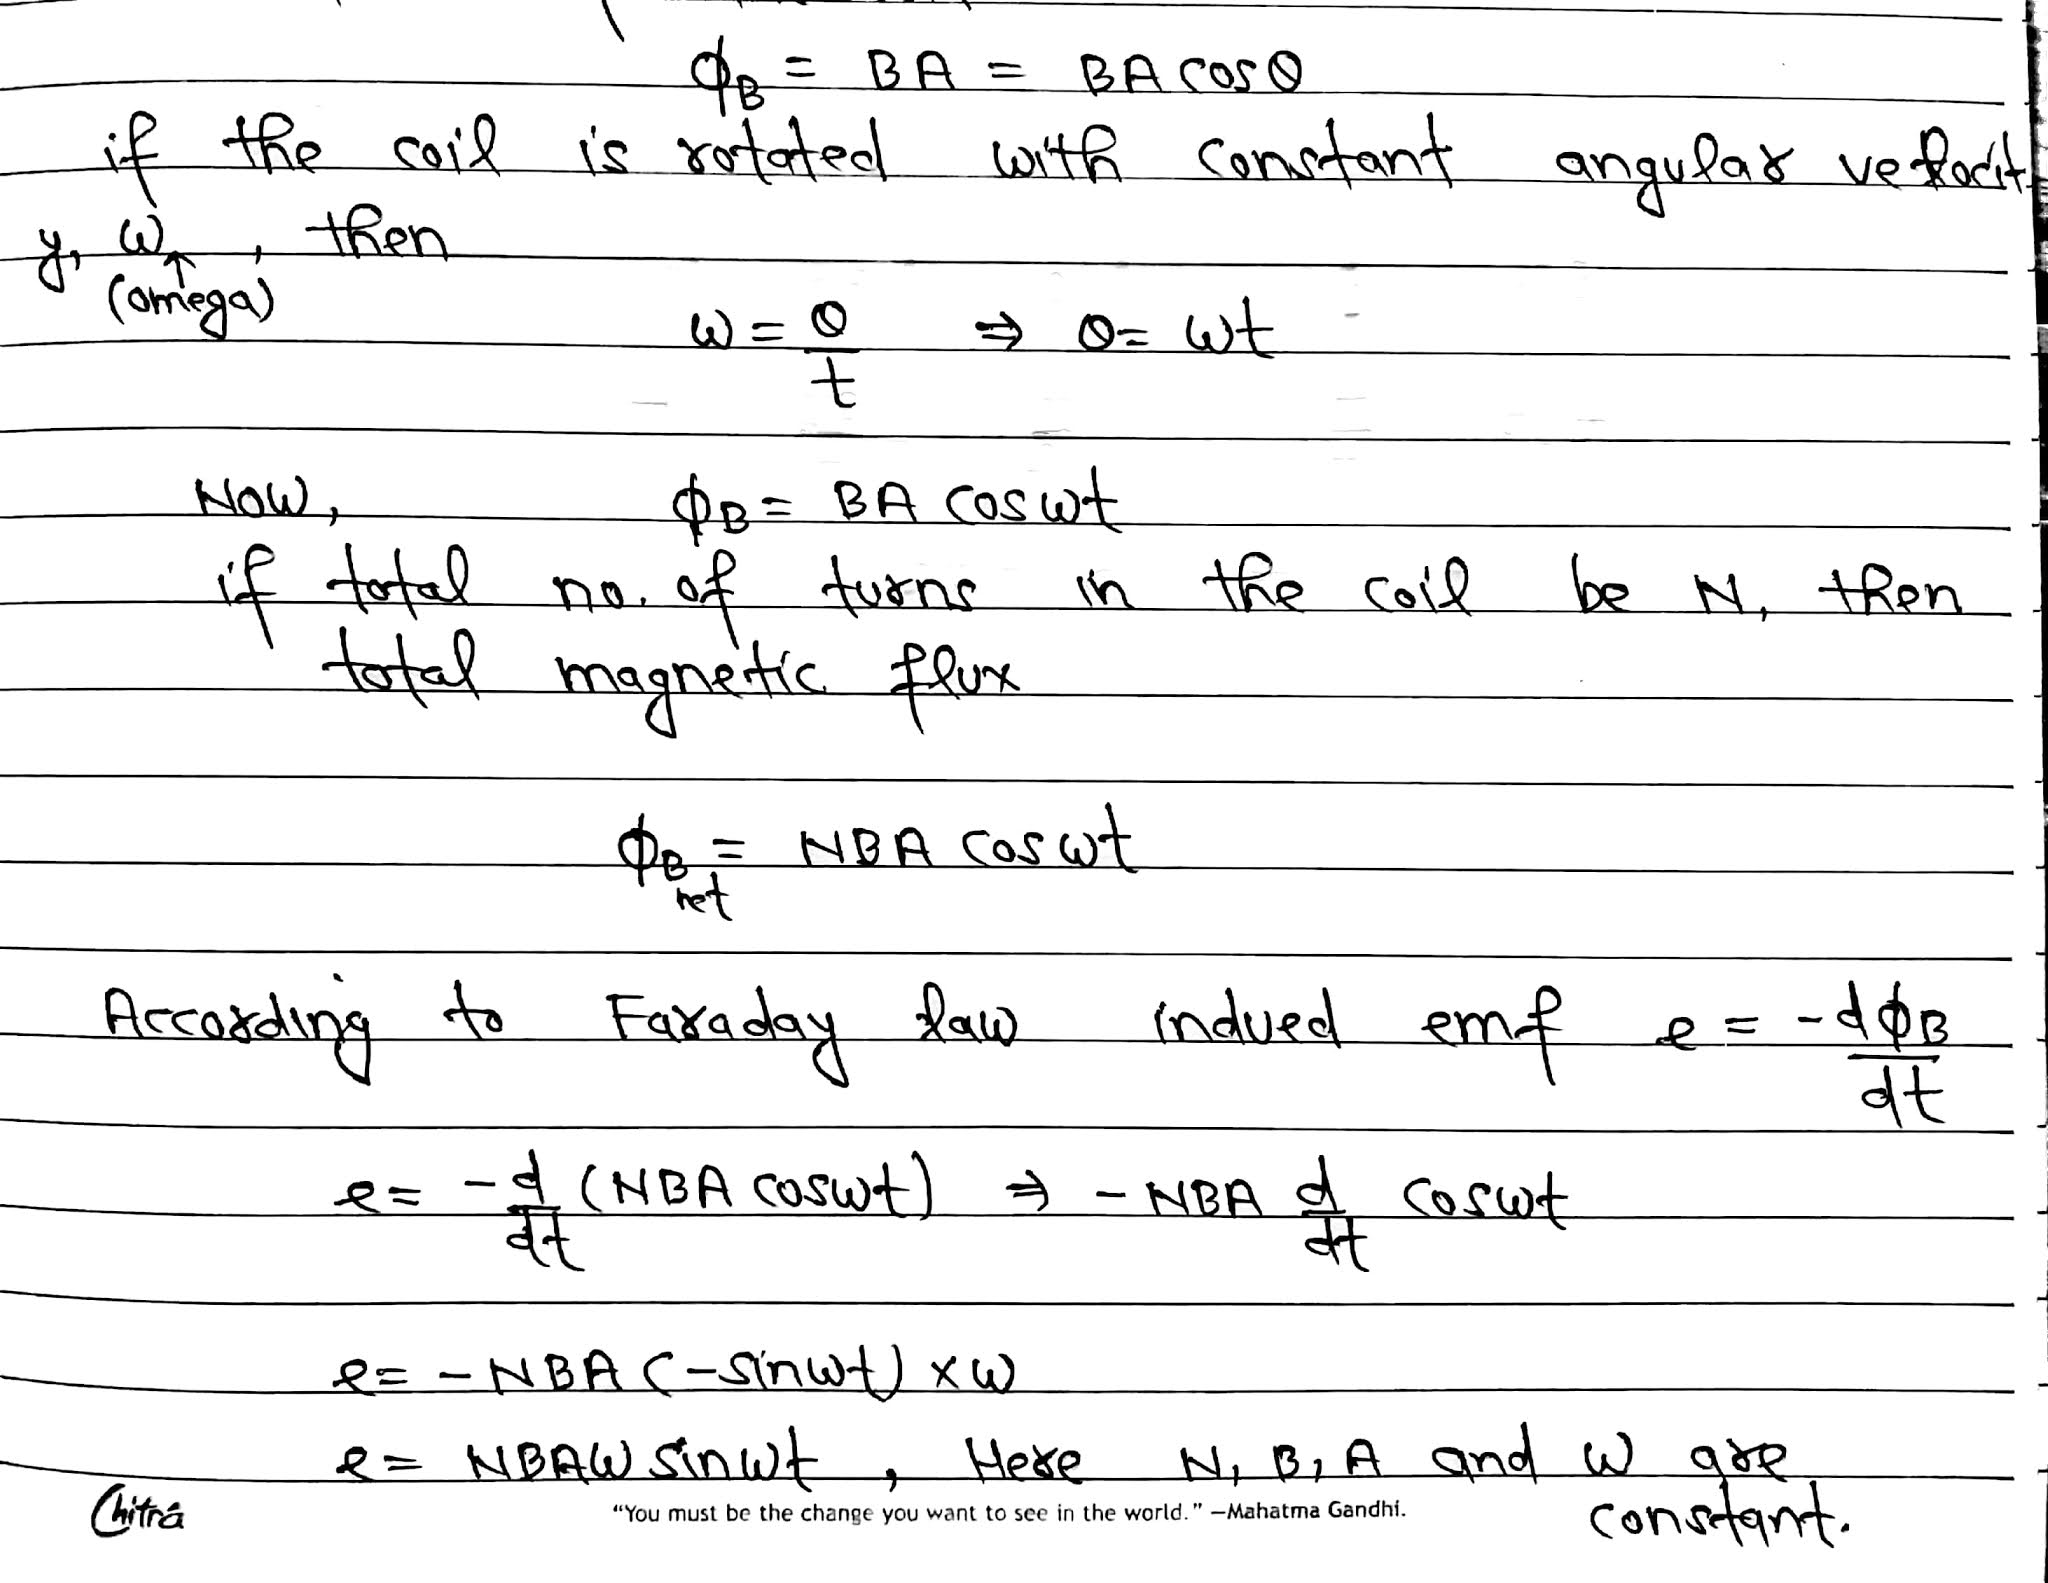 ϕB = BA = BA cosθ
if the coil is rotated with constant angular velocit
y, ω, then
↑
(omega)
ω = θ/t ⇒ θ = ωt
Now, ϕB = BA cosωt
if total no. of turns in the coil be N, then
total magnetic flux
ϕB net = NBA cosωt
According to Faraday law indued emf e = -dϕB/dt
e = -d/dt (NBA cosωt) ⇒ - NBA d/dt cosωt
e = - NBA (-sinωt) × ω
e = NBAω sinωt, Here N, B, A and ω are
constant.
Chitra
"You must be the change you want to see in the world." —Mahatma Gandhi.